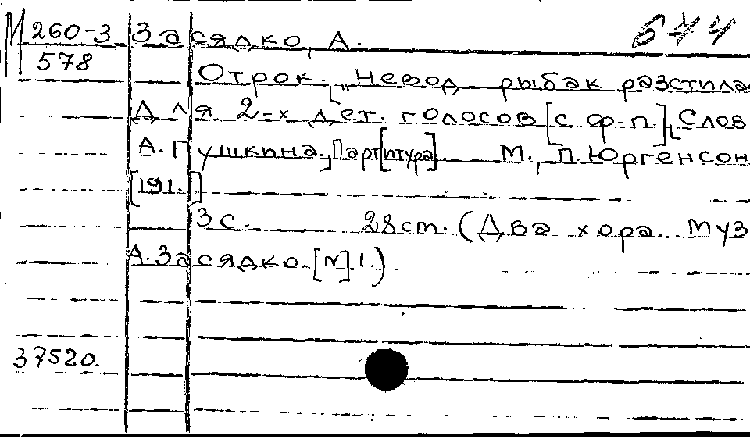 М 260-3 Засядко, А. 644
578
Отрок. „Невод рыбак разстила
Для 2-х дет. голосов [с ф-п.] Слов
А. Пушкина. Парт[итура] М., П. Юргенсон
[191.]
3 с. 28 ст. (Два хора. Муз
А. Засядко. [№] 1.)
37520.